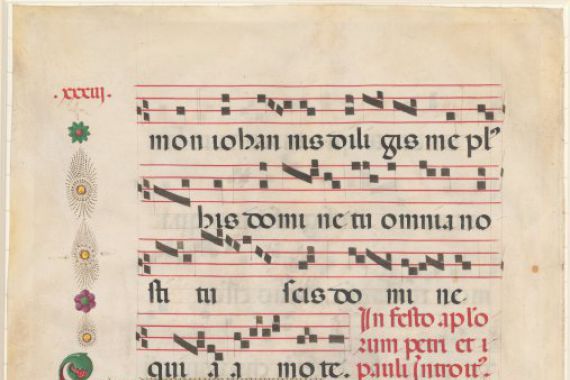 .xxxiii.
mon iohan nis dili gis me pl᾽
his domi ne tu omnia no
sti tu scis do mi ne
qui a a mo te.
In festo ap̄lo
rum petri et
pauli Introit᾽.